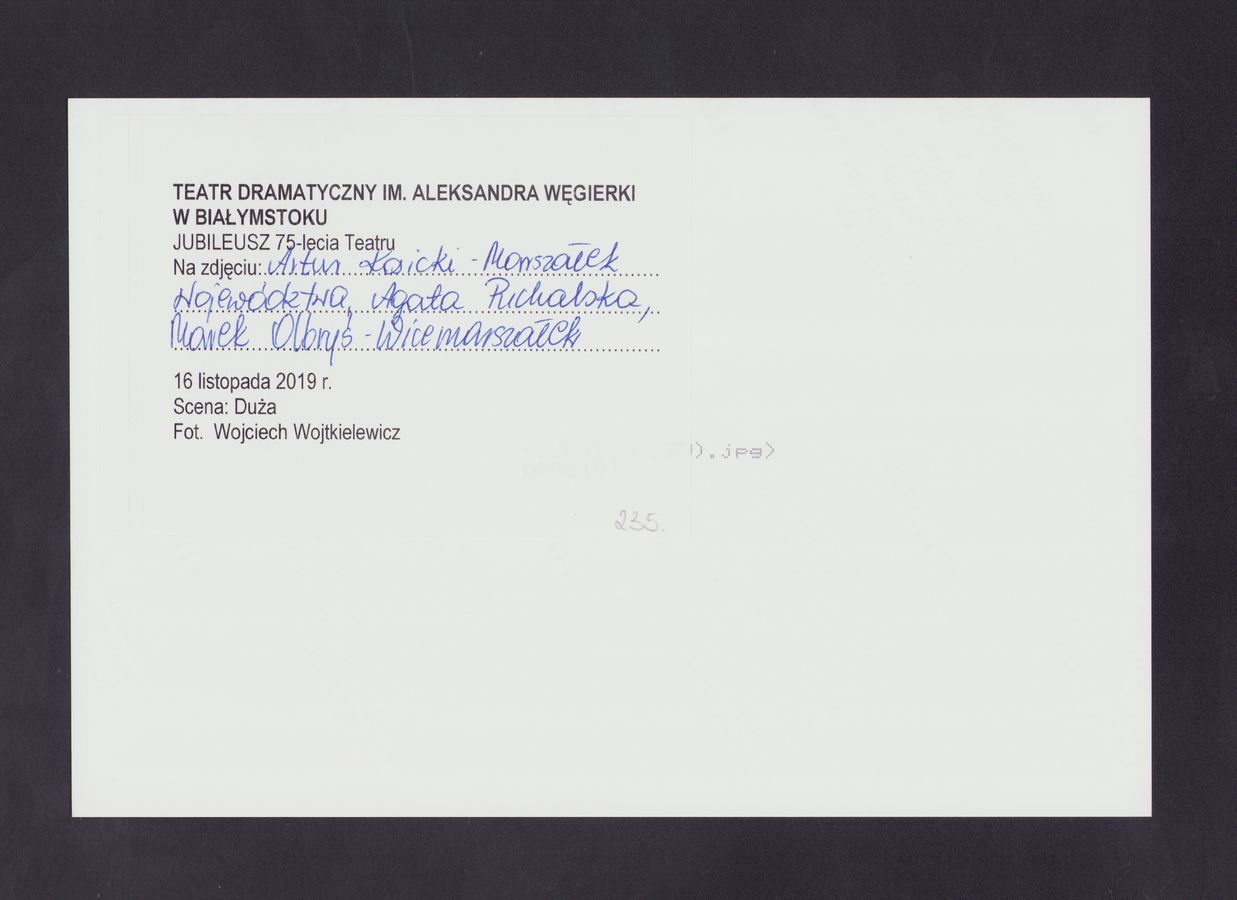 TEATR DRAMATYCZNY IM. ALEKSANDRA WĘGIERKI
W BIAŁYMSTOKU
JUBILEUSZ 75-lecia Teatru
Na zdjęciu: Artur Kosicki - Marszałek
Województwa, Agata Puchalska,
Marek Olbryś - Wicemarszałek
16 listopada 2019 r.
Scena: Duża
Fot. Wojciech Wojtkielewicz
).jpg)
235.